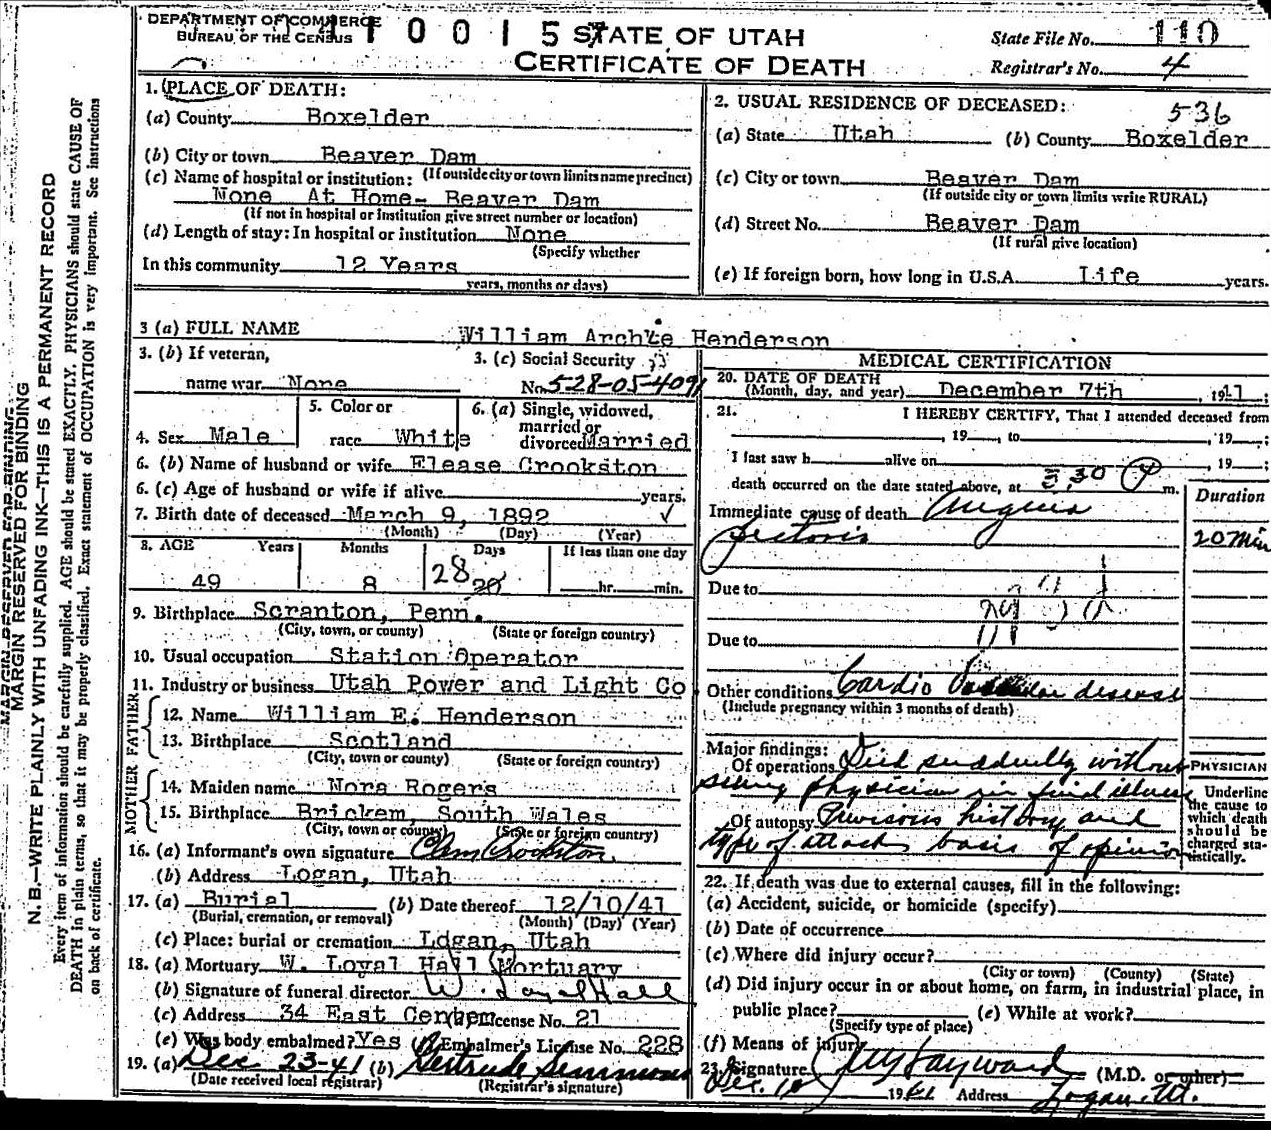 DEPARTMENT OF COMMERCE
BUREAU OF THE CENSUS
STATE OF UTAH
CERTIFICATE OF DEATH
State File No. 110
Registrar's No. 4
1. PLACE OF DEATH:
(a) County Boxelder
(b) City or town Beaver Dam
(If outside city or town limits name precinct)
(c) Name of hospital or institution:
None At Home- Beaver Dam
(If not in hospital or institution give street number or location)
(d) Length of stay: In hospital or institution None
(Specify whether
In this community 12 Years
years, months or days)
2. USUAL RESIDENCE OF DECEASED: 536
(a) State Utah (b) County Boxelder
(c) City or town Beaver Dam
(If outside city or town limits write RURAL)
(d) Street No. Beaver Dam
(If rural give location)
(e) If foreign born, how long in U.S.A. Life years.
3 (a) FULL NAME William Archie Henderson
3. (b) If veteran,
name war None
3. (c) Social Security
No. 528-05-4091
4. Sex Male
5. Color or
race White
6. (a) Single, widowed,
married or
divorced Married
6. (b) Name of husband or wife Elease Crookston
6. (c) Age of husband or wife if alive years.
7. Birth date of deceased March 9, 1892
(Month) (Day) (Year)
8. AGE Years Months Days If less than one day
49 8 28 hr. min.
9. Birthplace Scranton, Penn.
(City, town, or county) (State or foreign country)
10. Usual occupation Station Operator
11. Industry or business Utah Power and Light Co
FATHER
12. Name William E. Henderson
13. Birthplace Scotland
(City, town or county) (State or foreign country)
MOTHER
14. Maiden name Nora Rogers
15. Birthplace Brickem, South Wales
(City, town or county) (State or foreign country)
16. (a) Informant's own signature Crookston
(b) Address Logan, Utah
17. (a) Burial (b) Date thereof 12/10/41
(Burial, cremation, or removal) (Month) (Day) (Year)
(c) Place: burial or cremation Logan, Utah
18. (a) Mortuary W. Loyal Hall Mortuary
(b) Signature of funeral director W. Loyal Hall
(c) Address 34 East Center License No. 21
(e) Was body embalmed? Yes Embalmer's License No. 228
19. (a) Dec 23-41 (b) Gertrude Simmons
(Date received local registrar) (Registrar's signature)
MEDICAL CERTIFICATION
20. DATE OF DEATH
(Month, day, and year) December 7th , 1941;
21. I HEREBY CERTIFY, That I attended deceased from
, 19 , to , 19 ;
I last saw h alive on , 19 ;
death occurred on the date stated above, at 5:30 P m.
Duration
Immediate cause of death Angina
Pectoris 20 Min
Due to
Due to
Other conditions Cardio Vascular disease
(Include pregnancy within 3 months of death)
Major findings:
Of operations Died suddenly without
seeing physician in final illness
Of autopsy Previous history and
type of attack basis of opinion
PHYSICIAN
Underline
the cause to
which death
should be
charged sta-
tistically.
22. If death was due to external causes, fill in the following:
(a) Accident, suicide, or homicide (specify)
(b) Date of occurrence
(c) Where did injury occur?
(City or town) (County) (State)
(d) Did injury occur in or about home, on farm, in industrial place, in
public place? (e) While at work?
(Specify type of place)
(f) Means of injury
23. Signature Hayward (M.D. or other)
Dec. 1941 Address Logan Ut.
MARGIN RESERVED FOR BINDING
N. B.—WRITE PLAINLY WITH UNFADING INK—THIS IS A PERMANENT RECORD
Every item of information should be carefully supplied. AGE should be stated EXACTLY. PHYSICIANS should state CAUSE OF
DEATH in plain terms, so that it may be properly classified. Exact statement of OCCUPATION is very important. See instructions
on back of certificate.